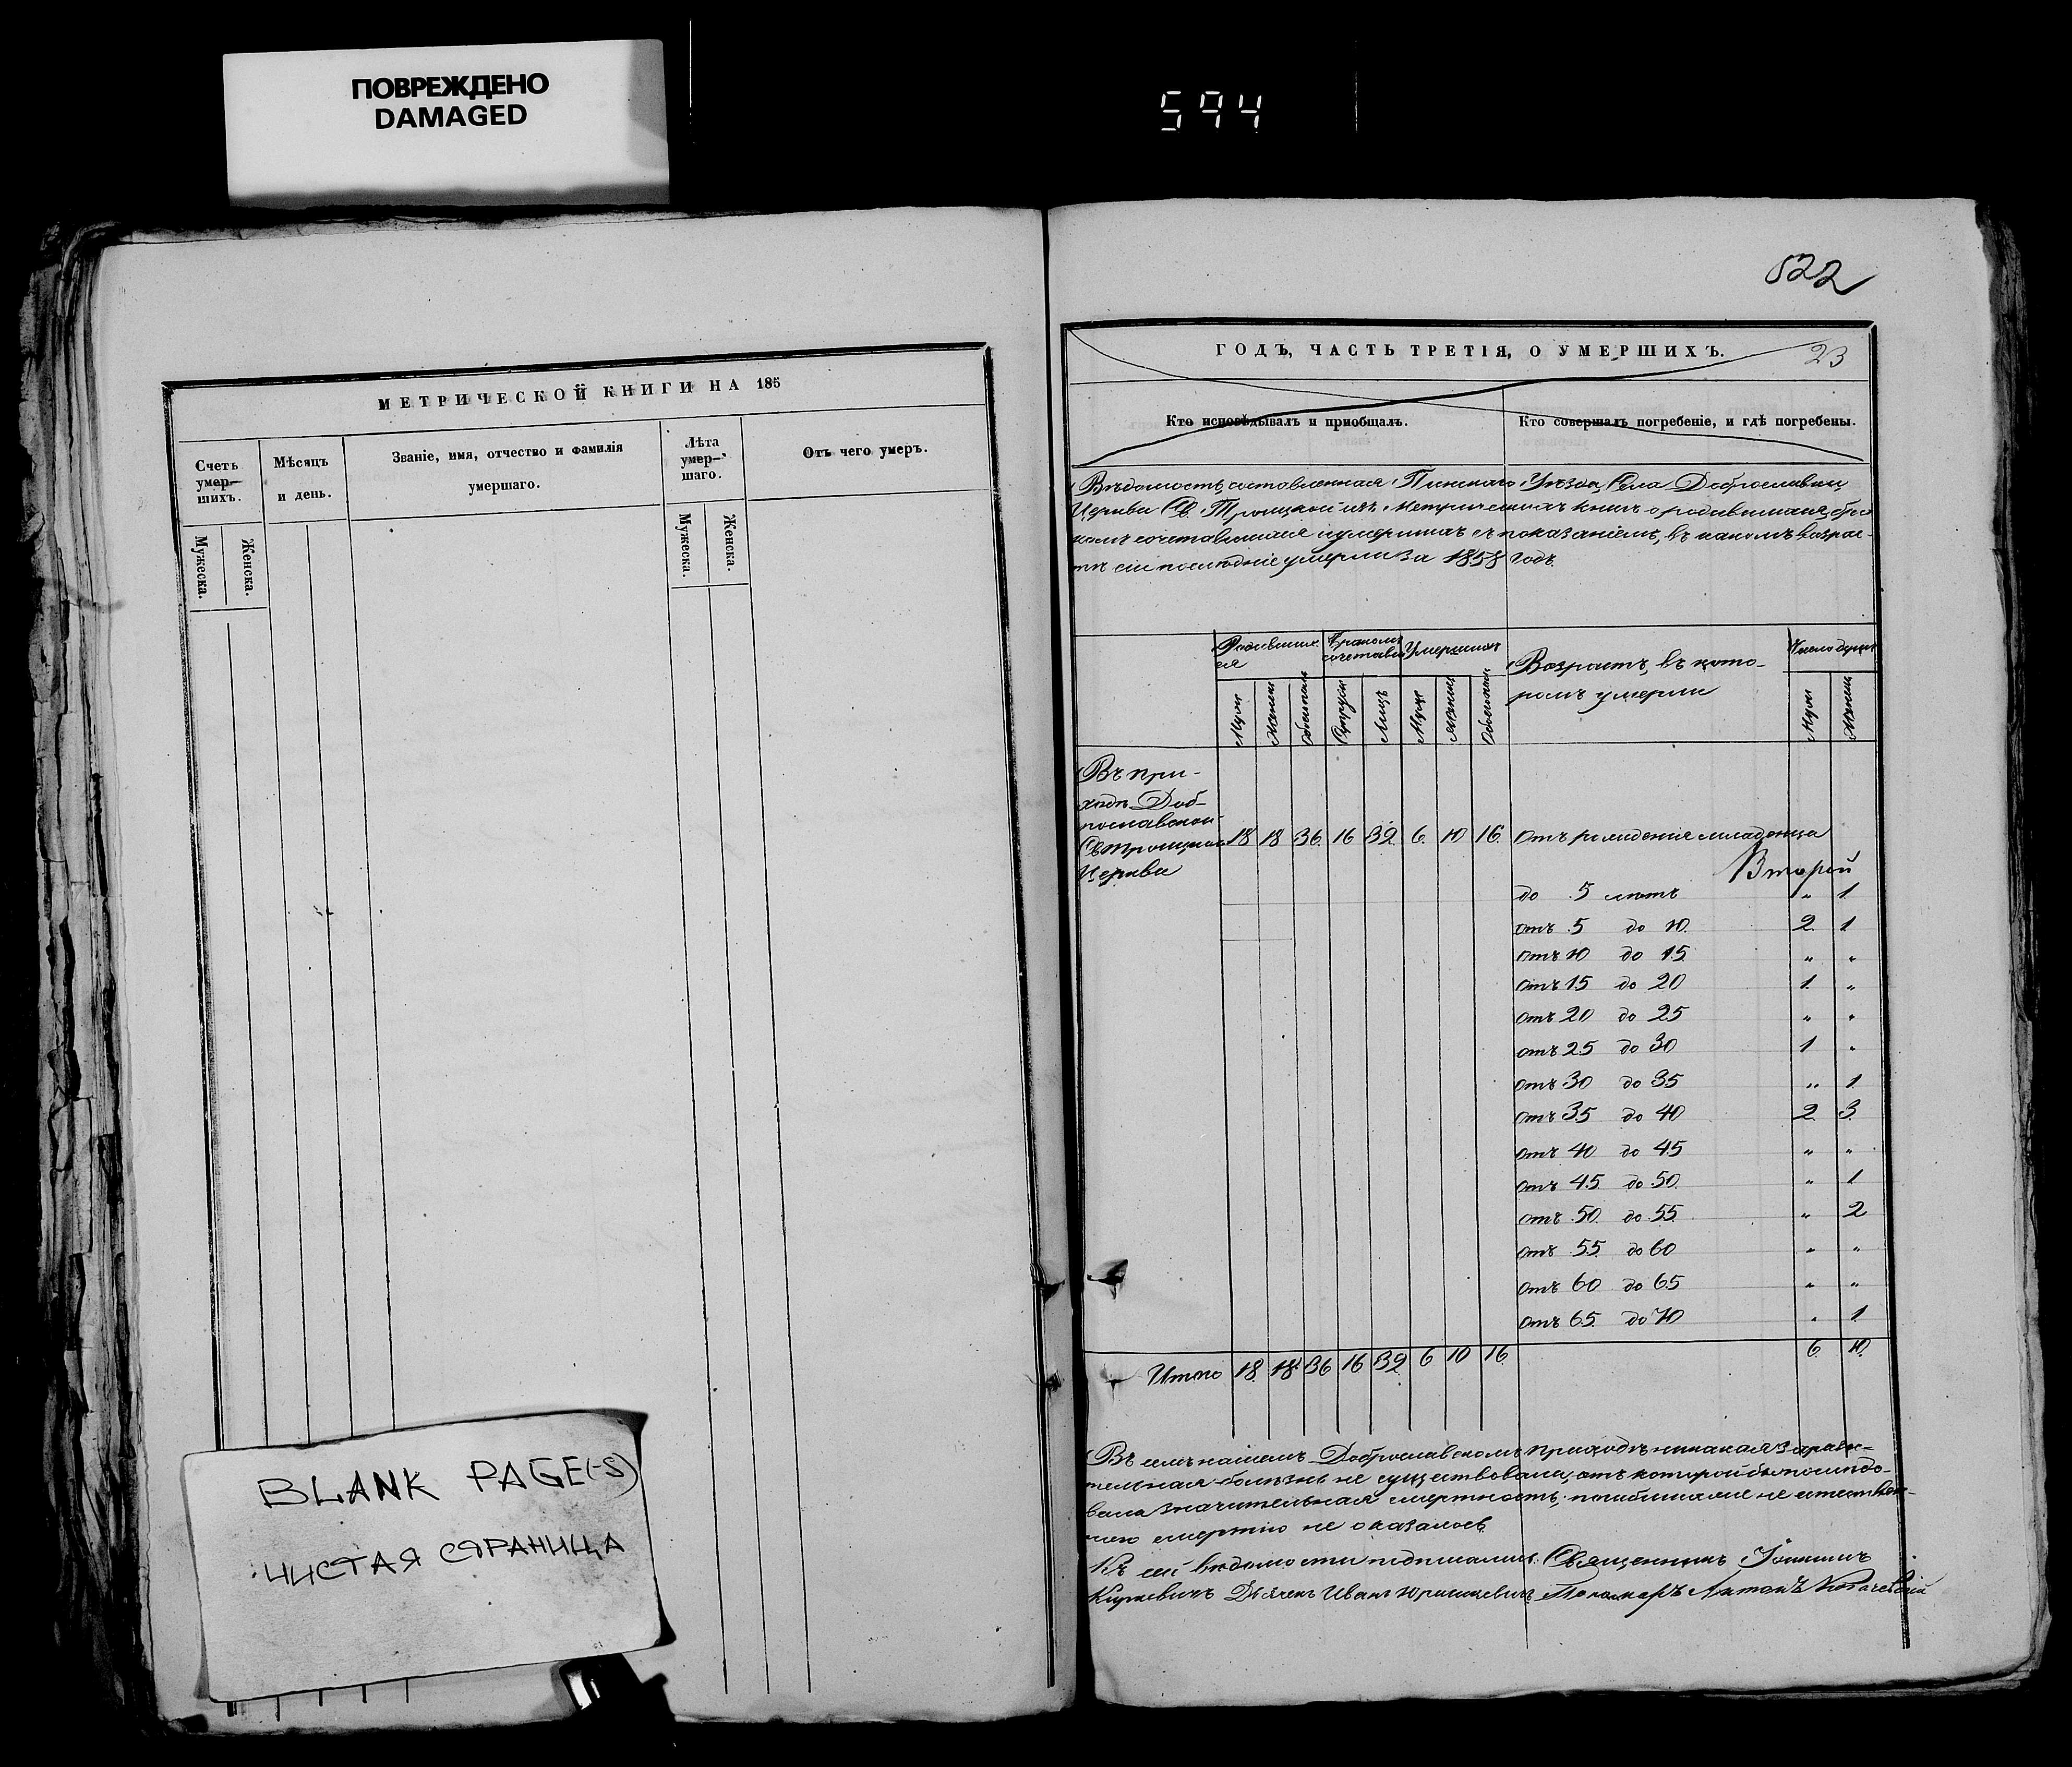 ПОВРЕЖДЕНО
DAMAGED
594
МЕТРИЧЕСКОЙ КНИГИ НА 185
Счетъ умер-шихъ.
Мужеска.
Женска.
Мѣсяцъ и день.
Званіе, имя, отчество и фамилія
умершаго.
Лѣта умер-шаго.
Мужеска.
Женска.
Отъ чего умеръ.
BLANK PAGE(-S)
ЧИСТАЯ СТРАНИЦА
522
ГОДЪ, ЧАСТЬ ТРЕТІЯ, О УМЕРШИХЪ.
23
Кто исповѣдывалъ и приобщалъ.
Кто совершалъ погребеніе, и гдѣ погребены.
Вѣдомость, составленная Пинскаго Уѣзда, Села Доброславки
Церкви Св. Троицкой изъ Метрическихъ книгъ о родившихся, бра
комъ сочетавшихся и умершихъ съ показаніемъ, въ какомъ возрас-
тѣ сіи послѣдніе умерли за 1858 годъ.
Родившихся
Бракомъ сочетавш
Умершихъ
Возрастъ, въ кото-
ромъ умерли
Число душъ
Муж
Женск
Обоего пола
Супруж
Лицъ
Муж
Женск
Обоего пола
Муж
Женск
Въ при-
ходѣ Доб-
рославской
Св Троицкой 18 18 36 16 32 6 10 16 Отъ рожденія младенца
Церкви
Второй
до 5 лѣтъ „ 1
отъ 5 до 10 2 1
отъ 10 до 15 „ „
отъ 15 до 20 1 „
отъ 20 до 25 „ „
отъ 25 до 30 1 „
отъ 30 до 35 „ 1
отъ 35 до 40 2 3
отъ 40 до 45 „ „
отъ 45 до 50 „ 1
отъ 50 до 55 „ 2
отъ 55 до 60 „ „
отъ 60 до 65 „ „
отъ 65 до 70 „ 1
Итого 18 18 36 16 32 6 10 16 6 10
Въ семъ нашемъ Доброславскомъ приходѣ никакая зарази-
тельная болѣзнь не существовала, отъ которой бы послѣдо-
вала значительная смертность; погибшихъ не естествен-
ною смертію не оказалось
Къ сей вѣдомости подписались: Священникъ Іоаннъ
Дьячекъ Иванъ Пономаръ Антонъ